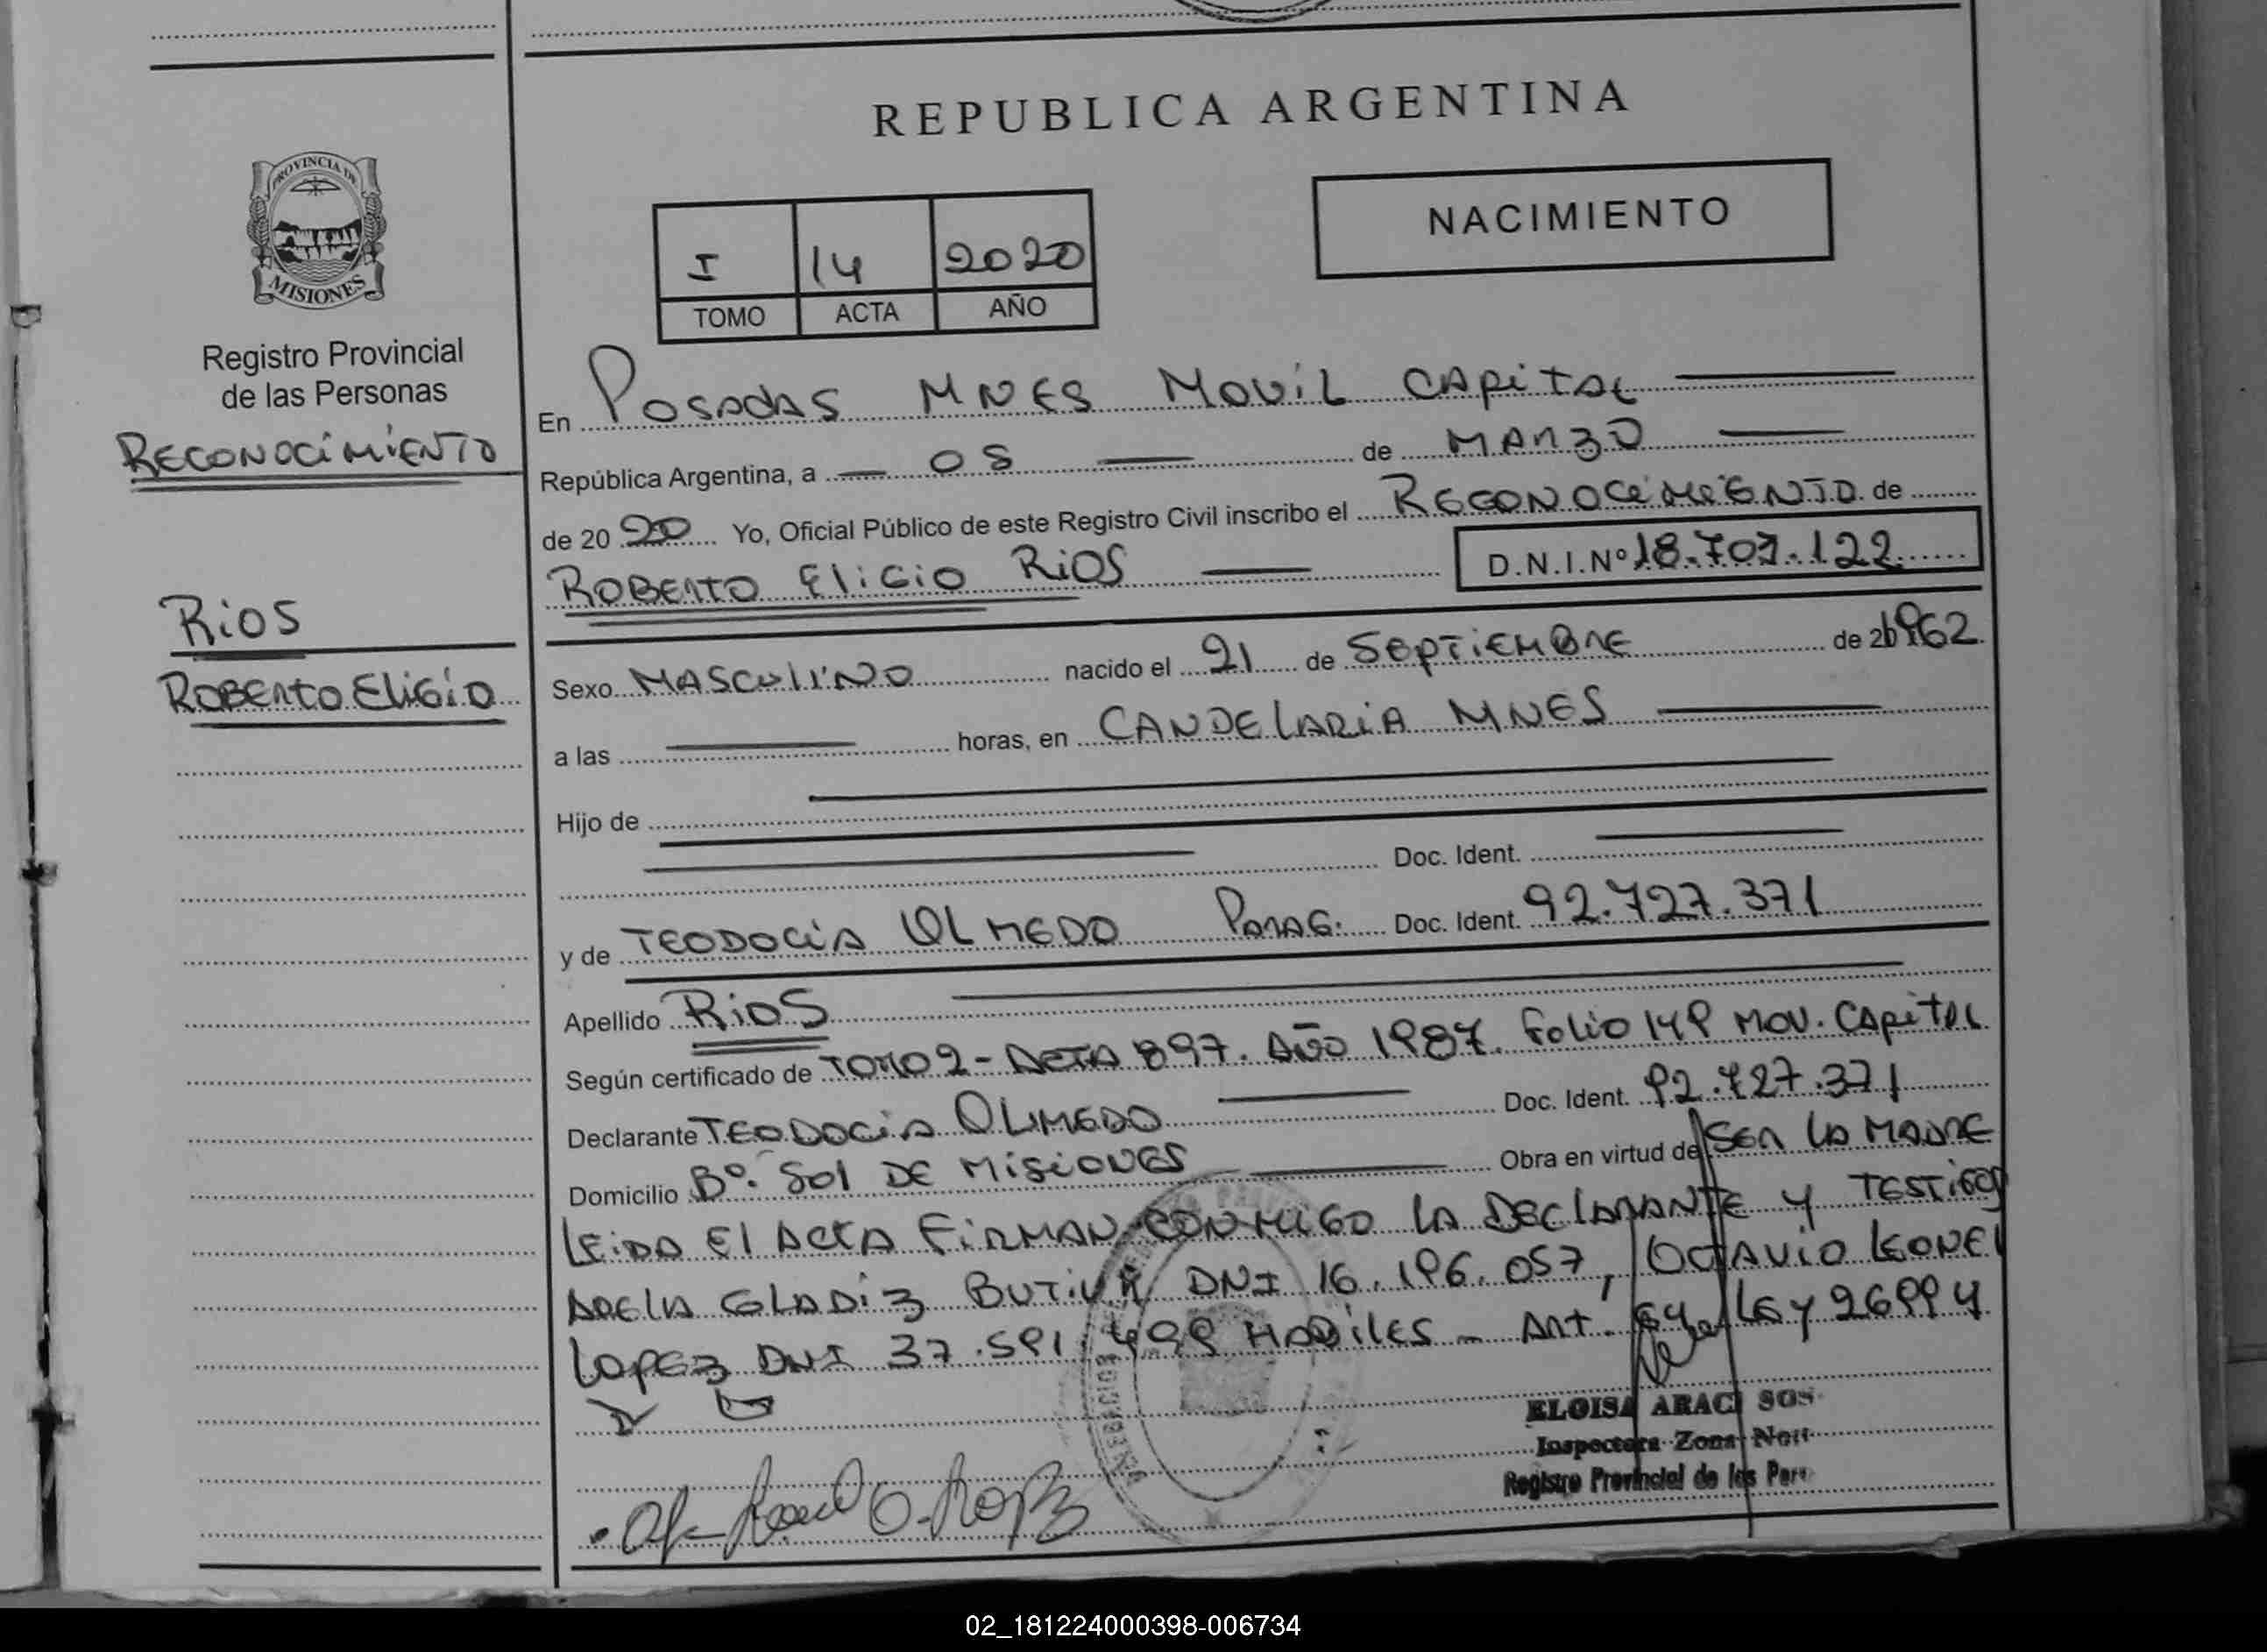 REPUBLICA ARGENTINA
NACIMIENTO
I 14 2020
TOMO ACTA AÑO
PROVINCIA DE
MISIONES
Registro Provincial
de las Personas
RECONOCIMIENTO
RIOS
ROBERTO ELIGIO
En POSADAS MNES MOVIL CAPITAL
República Argentina, a 05 de MARZO
de 20 20 Yo, Oficial Público de este Registro Civil inscribo el RECONOCIMIENTO de
ROBERTO ELIGIO RIOS D.N.I.Nº 18.707.122
Sexo MASCULINO nacido el 21 de SEPTIEMBRE de 1962
a las horas, en CANDELARIA MNES
Hijo de
Doc. Ident.
y de TEODOCIA OLMEDO PARAG. Doc. Ident. 92.727.371
Apellido RIOS
Según certificado de TOMO 2 - ACTA 897. AÑO 1987. FOLIO 149 MOV. CAPITAL
Declarante TEODOCIA OLMEDO Doc. Ident. 92.727.371
Domicilio Bº. SOL DE MISIONES Obra en virtud de SER LA MADRE
LEIDA EL ACTA FIRMAN CONMIGO LA DECLARANTE Y TESTIGOS
GLADIZ DNI 16.196.057, OCTAVIO LEONEL
LOPEZ DNI 37.591.499 HABILES - ART. LEY 26994
ELOISA ARACI SOS
Inspectora Zona
Registro Provincial de las Per
02_181224000398-006734